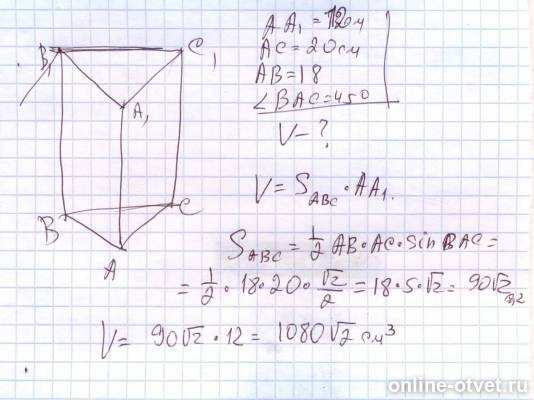 B₁
C₁
A₁
B
C
A
AA₁ = 12 см
AC = 20 см
AB = 18
∠BAC = 45°
V — ?
V = S_ABC · AA₁.
S_ABC = 1/2 AB · AC · sin BAC =
= 1/2 · 18 · 20 · √2/2 = 18 · 5 · √2 = 90√2
V = 90√2 · 12 = 1080√2 см³
online-otvet.ru